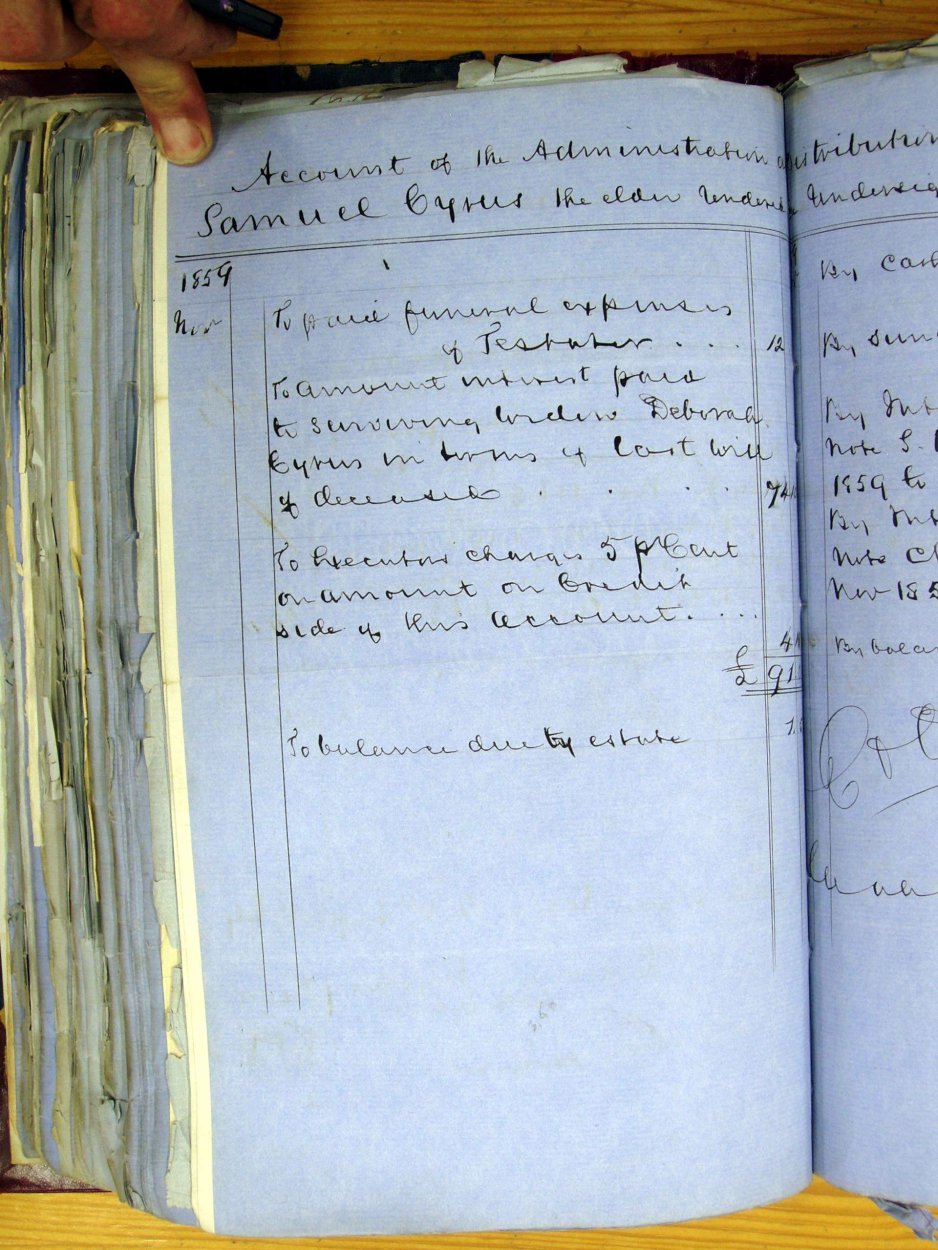 Account of the Administration
Samuel Cyrus the elder
1859
Nov
To paid funeral expenses
of Testator . . . . 12
To amount interest paid
to surviving widow Deborah
Cyrus in terms of last will
of deceased . . . . 74
To Executors charges 5 p Cent
on amount on Credit
side of this Account. . . .
4
£ 91
To balance due by estate
istribution
Undersig
By Cash
By Sun
By Int
Note S.
1859 to
By Int
Note Ch
Nov 185
By balan